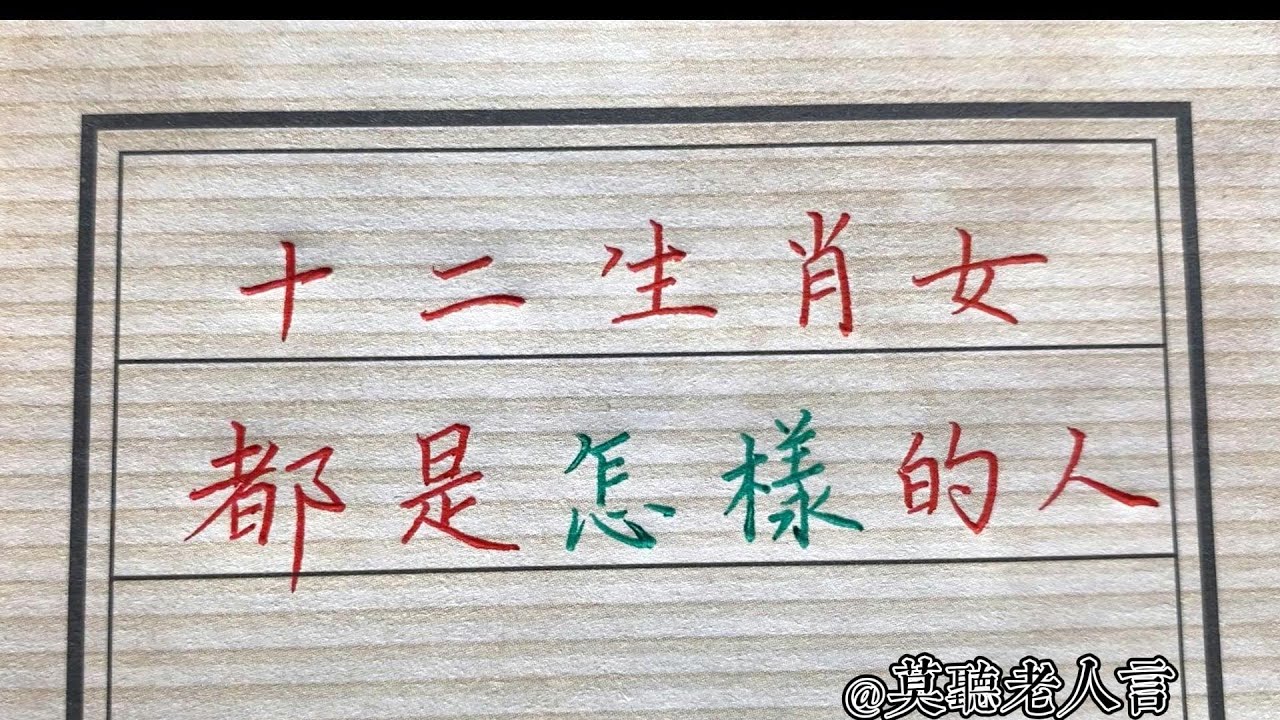 十二生肖女
都是怎樣的人
@莫聽老人言